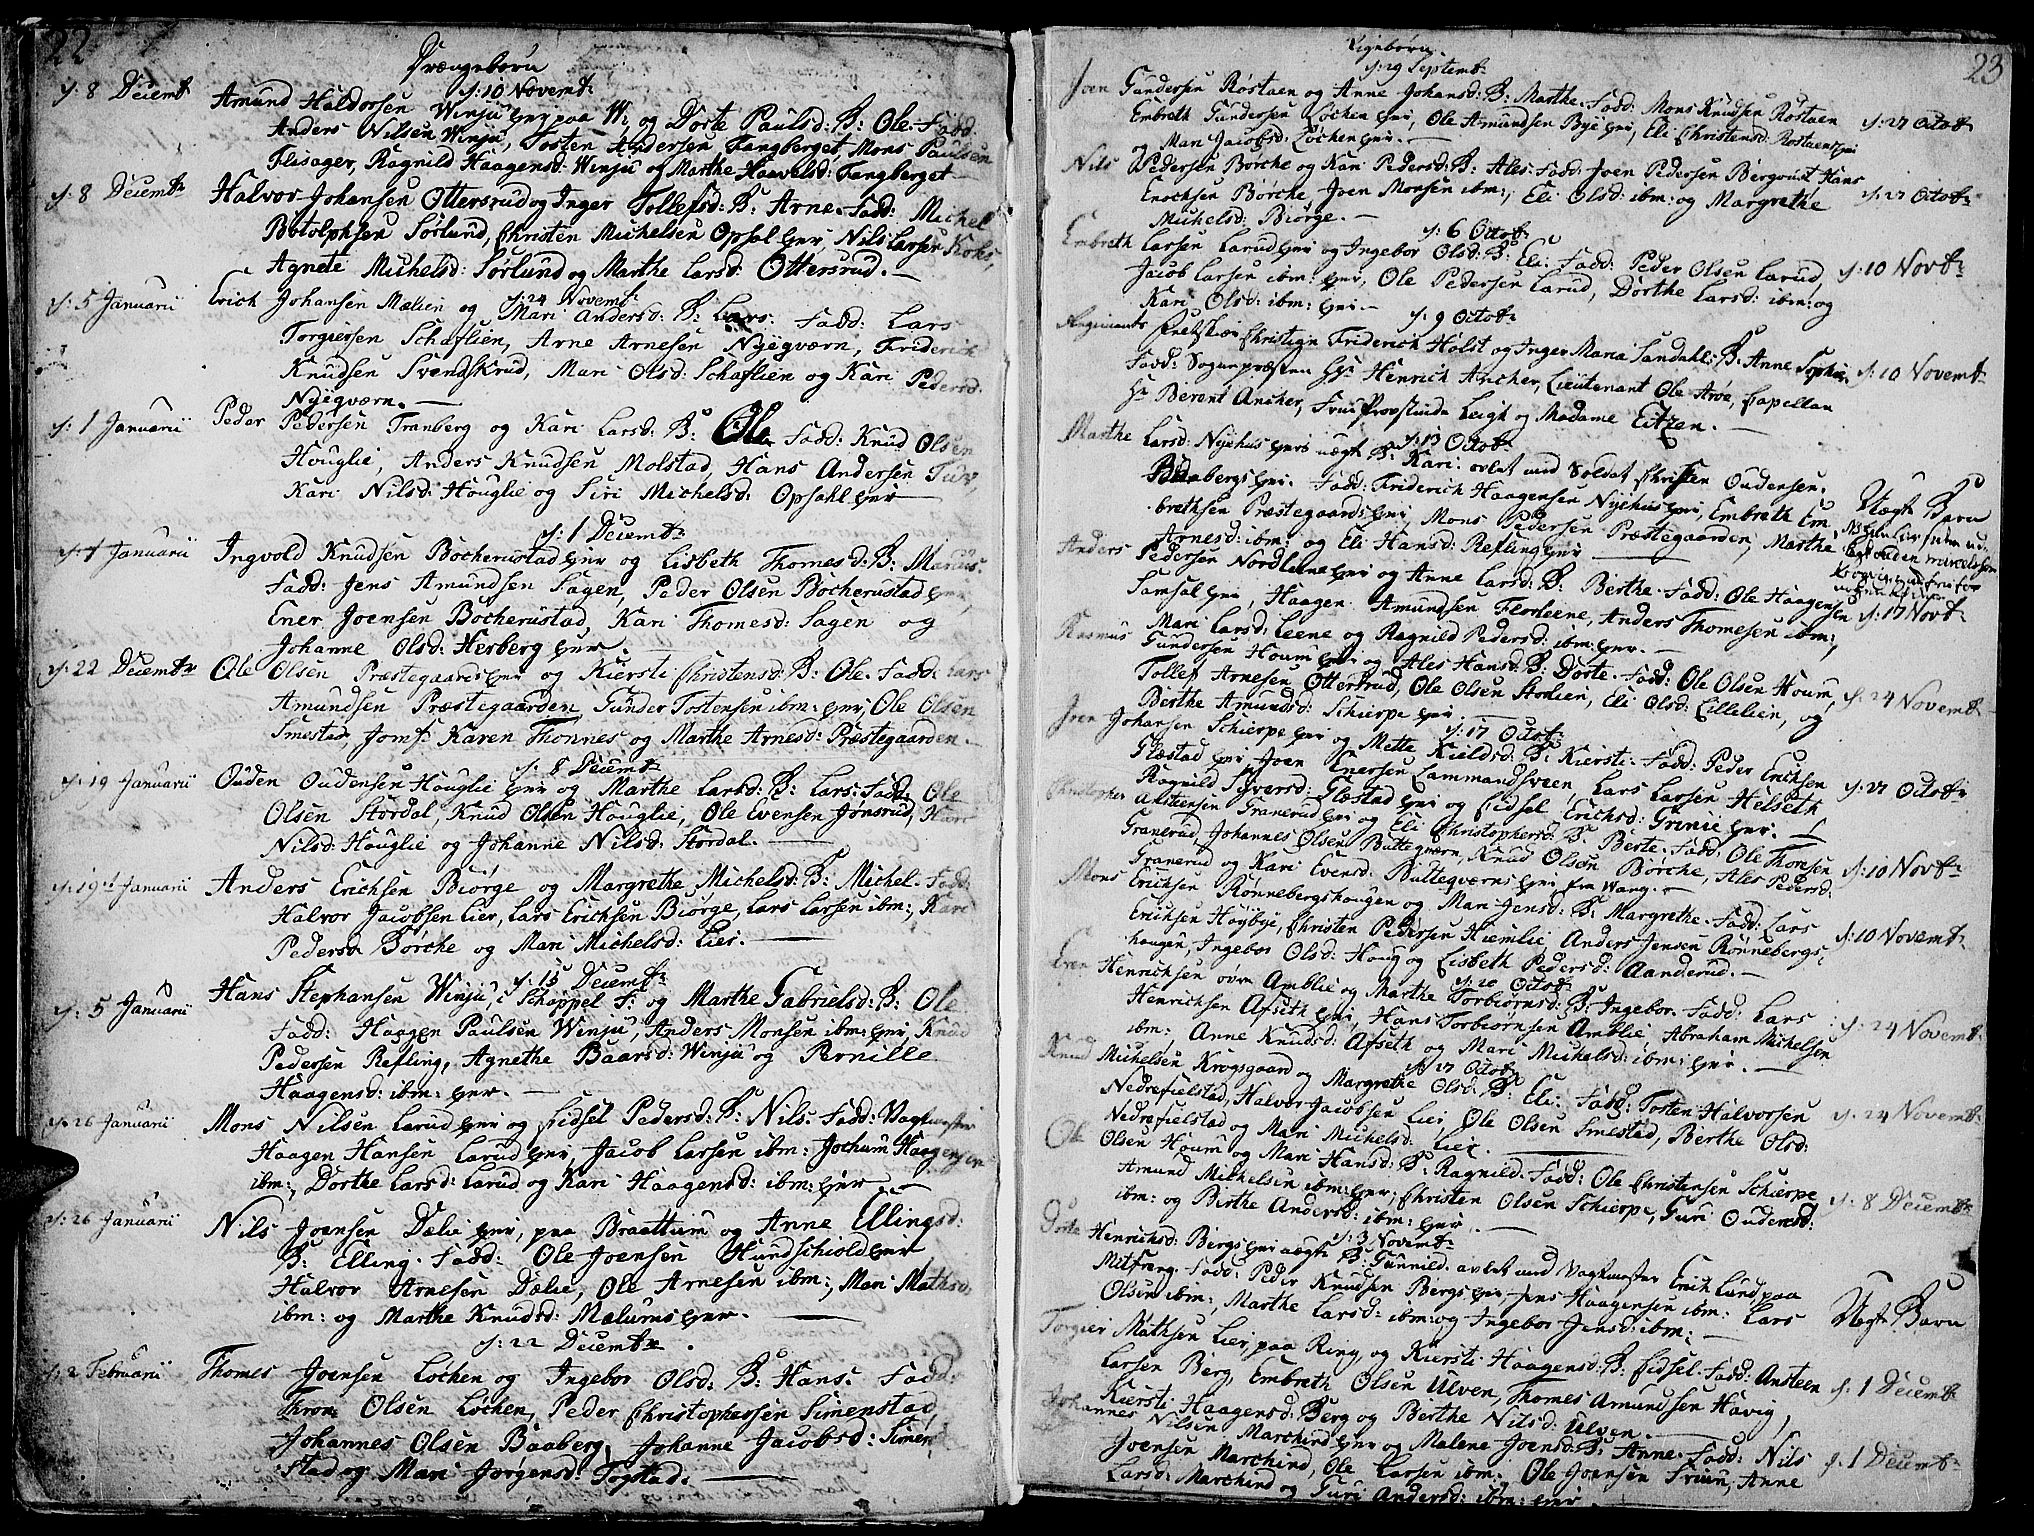 22
Drængebørn
d: 10 Novembr
d: 8 Decembr Amund Haldorsen Winju paa W: og Dorte Paulsd: B: Ole. Fadd:
Anders Nilsen Winju, Tosten Andersen Fangberget, Mons Paulsen
Flisager, Ragnild Haagensd: Winju og Marthe Haavelsd: Fangberget
d: 8 Decembr Halvor Johansen Ottersrud og Inger Tollefsd: B: Arne. Fadd: Michel
Botolphsen Sørlund, Christen Michelsen Opsal eier, Nils Larsen Kohs,
Agnete Michelsd: Sørlund og Marthe Larsd: Ottersrud. —
d: 24 Novembr
d: 5 Januarii Erich Johansen Mælien og Mari Andersd: B: Lars. Fadd: Lars
Torgersen Schaflien, Arne Arnesen Nyeqværn, Friderich
Knudsen Svendskrud, Mari Olsd: Schaflien og Kari Pedersd.
Nyeqværn. —
d: 1 Januarii Peder Pedersen Tranberg og Kari Larsd: B: Ole Fadd: Knud Olsen
Houglie, Anders Knudsen Molstad, Hans Andersen
Kari Nilsd: Houglie og Siri Michelsd: Opsahl eier —
d: 1 Decembr
Januarii Ingvold Knudsen Bocherustad eier og Lisbeth Thomesd: B: Marius
Fadd: Jens Amundsen Sagen, Peder Olsen Bocherustad eier,
Ener Joensen Bocherustad, Kari Thomesd: Sagen og
Johanne Olsd: Herberg eier.
d: 22 Decembr Ole Olsen Præstegaards eier og Kiersti Christensd: B: Ole. Fadd: Lars
Amundsen Præstegaarden, Gunder Tostensen ibm: eier, Ole Olsen
Smestad, Jomf: Karen Thonnes og Marthe Arnesd: Præstegaarden.
d: 8 Decembr
d: 19 Januarii Ouden Oudensen Houglie eier og Marthe Larsd: B: Lars. Fadd: Ole
Olsen Stordal, Knud Olsen Houglie, Ole Evensen Jønsrud, Kari
Nilsd: Houglie og Johanne Nilsd: Stordal. —
d: 19 Januarii Anders Erichsen Biørge og Margrethe Michelsd: B: Michel. Fadd:
Halvor Jacobsen Lier, Lars Erichsen Biørge, Lars Larsen ibm:, Kari
Pedersd Børche og Mari Michelsd: Lier. —
d: 15 Decembr
d: 5 Januarii Hans Stephansen Winju, i og Marthe Gabrielsd: B: Ole
Fadd: Haagen Paulsen Winju, Anders Monsen ibm: eier, Knud
Pedersen Refling, Agnethe Baarsd: Winju og Pernille
Haagensd: ibm: eier. —
d: 26 Januarii Mons Nilsen Larud eier og Eidsel Pedersd: B: Nils. Fadd: Vagtmester
Haagen Hansen Larud eier, Jacob Larsen ibm: Jochum Haagensen
ibm:, Dorthe Larsd: Larud og Kari Haagensd: ibm: eier. —
d: 26 Januarii Nils Joensen Dælie eier, paa Braattum og Anne Ellingsd:
B: Elling. Fadd: Ole Joensen Hundschiold eier
Halvor Arnesen Dælie, Ole Arnesen ibm:, Mari Mathsd:
ibm: og Marthe Knudsd: Mælums eier. —
d: 22 Decembr.
d: 2 Februarii Thomes Joensen Løchen og Ingebor Olsd: B: Hans. Fadd:
Thron Olsen Løchen, Peder Christophersen Simenstad
Johannes Olsen Baaberg, Johanne Jacobsd: Simen-
stad og Mari Jørgensd: Togstad. —
23
Pigebørn
d: 29 Septembr
Joen Gundersen Rostaen og Anne Johansd: B: Marthe. Fadd: Mons Knudsen Rostaen
Embreth Gundersen Løchen eier, Ole Amundsen Bye eier, Eli Christensd: Rostaens eier d: 27 Octobr
og Mari Jacobsd: Løchen eier. —
Nils Pedersen Borche og Kari Pedersd: B: Ales. Fadd: Joen Pedersen Bergqvist Hans
Enochsen Borche Joen Monsen ibm:, Eli Olsd: ibm: og Margrethe d: 27 Octobr
Michelsd: Biørge. —
d: 6 Octobr
Embreth Larsen Larud eier og Ingebor Olsd: B: Eli. Fadd: Peder Olsen Larud,
Jacob Larsen ibm: eier, Ole Pedersen Larud, Dorthe Larsd: ibm: og d: 10 Novbr
Kari Olsd: ibm: eier. —
d: 9 Octobr
Regiments Christian Friderich Holst og Inger Maria Sandahl: B: Anne Sophie
Fadd: Sognepræsten Hr Henrich Ancher, Lieutenant Ole Arøe, Capellan d: 10 Novembr
Hr Berent Ancher, Frue Provstinde Leigh og Madame Eitzen. —
d: 13 Octobr
Marthe Larsd: Nyehus eiers uægte B: Kari. avlet med Soldat Christen Oudensen,
Baabergs eier. Fadd: Friderich Haagensen Nyehus eier, Embreth Em-
brethsen Præstegaards eier, Mons Pedersen Præstegaarden, Marthe
Arnesd: ibm: og Eli Hansd: Refling eier —
Uægte Barn
Anders Pedersen Nordleene eier og Anne Larsd: B: Berthe. Fadd: Ole Haagensen
Samsal eier, Haagen Amundsen Florleene, Anders Thomesen ibm: d: 17 Novbr
Mari Larsd: Leene og Ragnild Pedersd: ibm: eier. —
Rasmus Gundersen Houm eier og Ales Hansd: B: Dorte. Fadd: Ole Olsen Houm,
Tollef Arnesen Ottersrud, Ole Olsen Storlien, Eli Olsd: Lillelien, og d: 24 Novembr
Berthe Amundsd: Schierpe eier. —
d: 17 Octobr
Joen Johansen Schierpe eier og Mette Kieldsd: B: Kiersti. Fadd: Peder Erichsen
Glæstad eier, Joen Enersen Lammandsveen, Lars Larsen Helseth d: 27 Octobr
Ragnild Siversd: Glæstad eier og Eidsel Erichsd: Grinie eier. —
Christopher Ansteensen Granerud eier og Eli Christophersd: B: Berte. Fadd: Ole Thoresen
Granerud, Johannes Olsen Butteqværn, Knud Olsen Børche, Ales Pedersd: d: 10 Novbr
Granerud og Kari Evensd: Butteqværns eier fra Wang. —
Mons Erichsen Rønnebergshougen og Mari Jensd: B: Margrethe. Fadd: Lars
Erichsen Høybye, Christen Pedersen Hiemlie, Anders Jensen Rønnebergs- d: 10 Novembr
hougen, Ingebor Olsd: Houg og Lisbeth Pedersd: Aanderud. —
d: 20 Octobr
Even Henrichsen øvre Amblie og Marthe Torbiørnsd: B: Ingebor. Fadd: Lars
Henrichsen Afseth eier, Hans Torbiørnsen Amblie, Abraham Michelsen d: 24 Novembr
ibm:, Anne Knudsd: Afseth og Mari Michelsd: ibm: eier. —
d: 27 Octobr
Knud Michelsen Krogsgaard og Margrethe Olsd: B: Eli. Fadd: Tosten Halvorsen
Nedrefielstad, Halvor Jacobsen Lier, Ole Olsen Smestad, Berthe Olsd: d: 24 Novembr
Nedrefielstad og Mari Michelsd: Lier. —
Ole Olsen Houm og Mari Hansd: B: Ragnild. Fadd: Ole Christensen Schierpe
Amund Michelsen ibm: eier, Christen Olsen Schierpe, Guri Oudensd: d: 8 Decembr
ibm: og Birthe Andersd: ibm: eier. —
d: 3 Novembr
Dorte Henrichsd: Bergs eier uægte B: Gunnild. avlet med Vagtmester Erich Lund paa
Fadd: Peder Knudsen Bergs eier, Jens Haagensen ibm: Lars Uægt Barn
Olsen ibm:, Marthe Larsd: ibm: og Ingebor Jensd: ibm: —
Torgier Mathsen Lier, paa Ring, og Kiersti Haagensd: B: Eidsel. Fadd: Ansteen
Larsen Berg, Embreth Olsen Ulven, Thomes Amundsen Havig, d: 1 Decembr
Kiersti Haagensd: Berg og Berthe Nilsd: Ulven. —
Johannes Nilsen Marchind eier og Malene Joensd: B: Anne. Fadd: Nils
Joensen Marchind, Ole Larsen ibm:, Ole Joensen Fruun, Anne d: 1 Decembr
Larsd: Marchind og Guri Andersd: ibm: eier